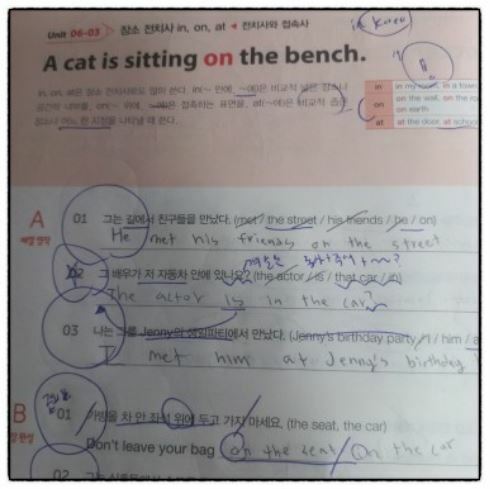 Unit 06-03 장소 전치사 in, on, at ◀ 전치사와 접속사
in Korea
A cat is sitting on the bench.
in, on, at은 장소 전치사로도 많이 쓴다. in(~ 안에, ~에)은 비교적 넓은 장소나
공간의 내부를, on(~ 위에, ~에)은 접촉하는 표면을, at(~에)은 비교적 좁은
장소나 어느 한 지점을 나타낼 때 쓴다.
in in my room, in a town
on on the wall, on the
on earth
at at the door, at school
A 01 그는 길에서 친구들을 만났다. (met / the street / his friends / he / on)
He met his friends on the street
02 그 배우가 저 자동차 안에 있나요? (the actor / is / that car / in)
The actor is in the car?
03 나는 그를 Jenny의 생일파티에서 만났다. (Jenny's birthday party / I / him /
I met him at Jenny's birthday
B 01 가방을 차 안 좌석 위에 두고 가지 마세요. (the seat, the car)
Don't leave your bag on the seat / on the car
02